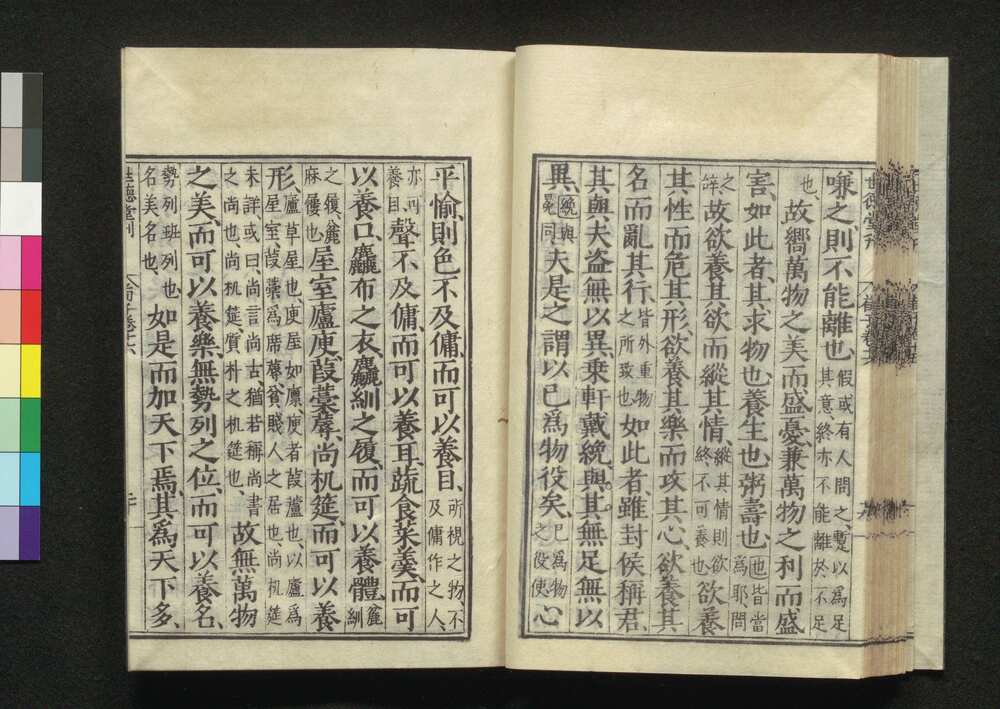 嗛之、則不能離也、假或有人問之、蹔以為足其意、終亦不能離於不足
也、故嚮萬物之美而盛憂、兼萬物之利而盛
害、如此者、其求物也、養生也、粥壽也、也皆當為耶、問
之辭故欲養其欲而縱其情、縱其情則欲終不可養也欲養
其性而危其形、欲養其樂而攻其心、欲養其
名而亂其行、皆外重物之所致也如此者、雖封侯稱君、
其與夫盗無以異、乗軒戴絻與其無足無以
異、絻與冕同夫是之謂以已爲物役矣、已爲物之役使心
平愉、則色不及傭、而可以養目、所視之物、不及傭作之人、
亦可養目聲不及傭、而可以養耳、蔬食菜羹、而可
以養口、麤布之衣、麤紃之履、而可以養體、麤紃
之履、麤麻屨也屋室廬庾、葭藁蓐、尚机筵、而可以養
形、廬草屋也、庾屋如廪庾者、葭蘆也、以廬爲屋室、葭藁爲席蓐、貧賤人之居也、尚机筵
未詳、或曰、尚言尚古、猶若稱尚書之尚也、尚机筵、質朴之机筵也、故無萬物
之美、而可以養樂、無勢列之位、而可以養名、
勢列班列也、名美名也、如是而加天下焉、其爲天下多、
世德堂刊